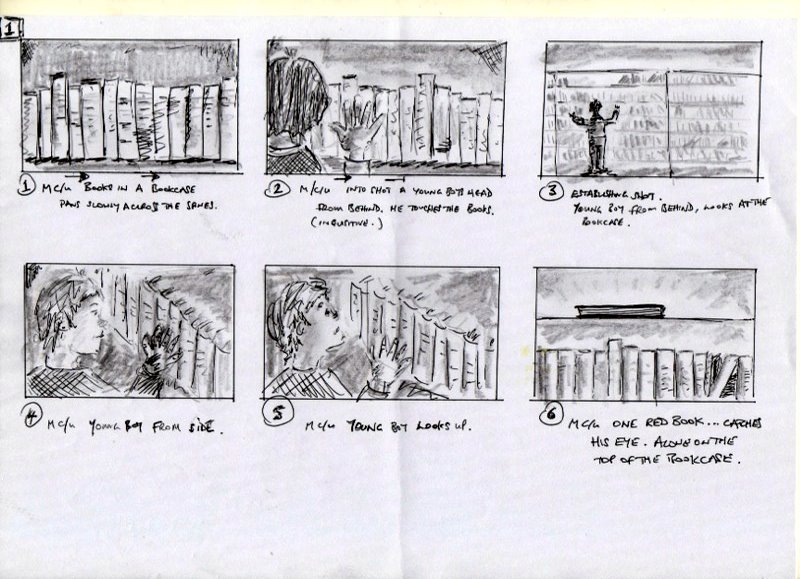 1
1 M C/U BOOKS IN A BOOKCASE
PANS SLOWLY ACROSS THE SPINES.
2 M/C/U INTO SHOT A YOUNG BOYS HEAD
FROM BEHIND. HE TOUCHES THE BOOKS.
(INQUISITIVE.)
3 ESTABLISHING SHOT.
YOUNG BOY FROM BEHIND, LOOKS AT THE
BOOKCASE.
4 M C/U YOUNG BOY FROM SIDE.
5 M C/U YOUNG BOY LOOKS UP.
6 M C/U ONE RED BOOK... CATCHES
HIS EYE. ALONE ON THE
TOP OF THE BOOKCASE.